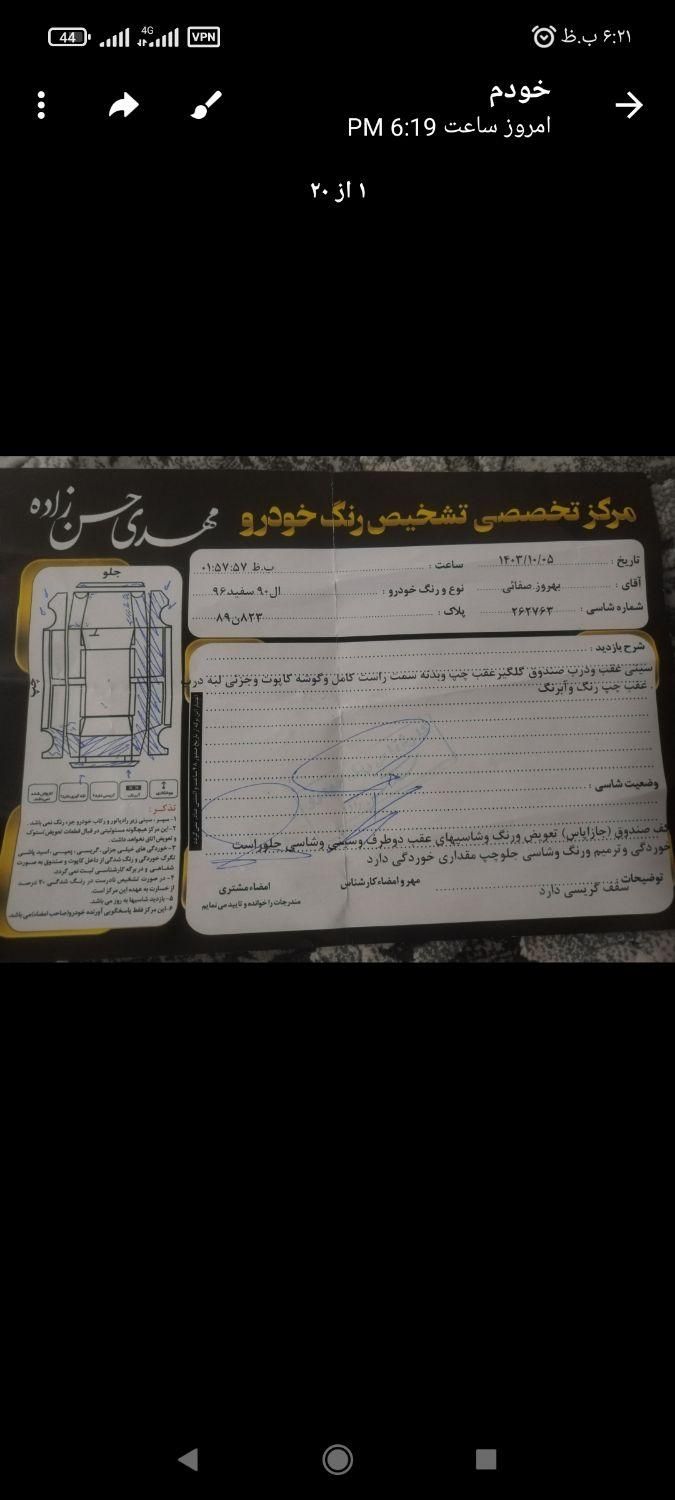 ۶:۲۱ ب.ظ
VPN
4G
44
خودم
امروز ساعت 6:19 PM
۱ از ۲۰
مرکز تخصصی تشخیص رنگ خودرو
مهدی حسن زاده
تاریخ : ۱۴۰۳/۱۰/۰۵ ساعت : ۰۱:۵۷:۵۷ ب.ظ
آقای : بهروز صفائی نوع و رنگ خودرو : ال۹۰ سفید۹۶
شماره شاسی : ۲۶۲۷۶۳ پلاک : ۸۲۳ن۸۹
شرح بازدید :
سینی عقب ودرب صندوق گلگیر عقب چپ وبدنه سمت راست کامل وگوشه کاپوت وجزئی لبه درب
عقب چپ رنگ وآبرنگ
وضعیت شاسی :
کف صندوق (جازاپاس) تعویض ورنگ وشاسیهای عقب دوطرف وسینی وشاسی جلوراست
خوردگی و ترمیم ورنگ وشاسی جلوچپ مقداری خوردگی دارد
توضیحات :
سقف گریسی دارد
مهر و امضاء کارشناس
امضاء مشتری
مندرجات را خوانده و تایید می نمایم
جلو
چپ
تذکر :
۱- سپر ، سینی زیر رادیاتور و رکاب خودرو جزء رنگ نمی باشد.
۲- این مرکز هیچگونه مسئولیتی در قبال قطعات تعویض استوک
و تعویض اتاق نخواهد داشت
۳- خوردگی های خیلی جزئی ، گریسی ، زمینی ، اسید پاشی
تگرگ خوردگی و رنگ شدگی از داخل کاپوت و صندوق به صورت
شفاهی و در برگه کارشناسی ثبت نمی گردد.
۴- در صورت تشخیص نادرست در رنگ شدگی ۲۰ درصد
از خسارت به عهده این مرکز است.
۵- بازدید شاسیها به روز می باشد.
۶- این مرکز فقط پاسخگویی آورنده خودرو(صاحب امضاء) می باشد.